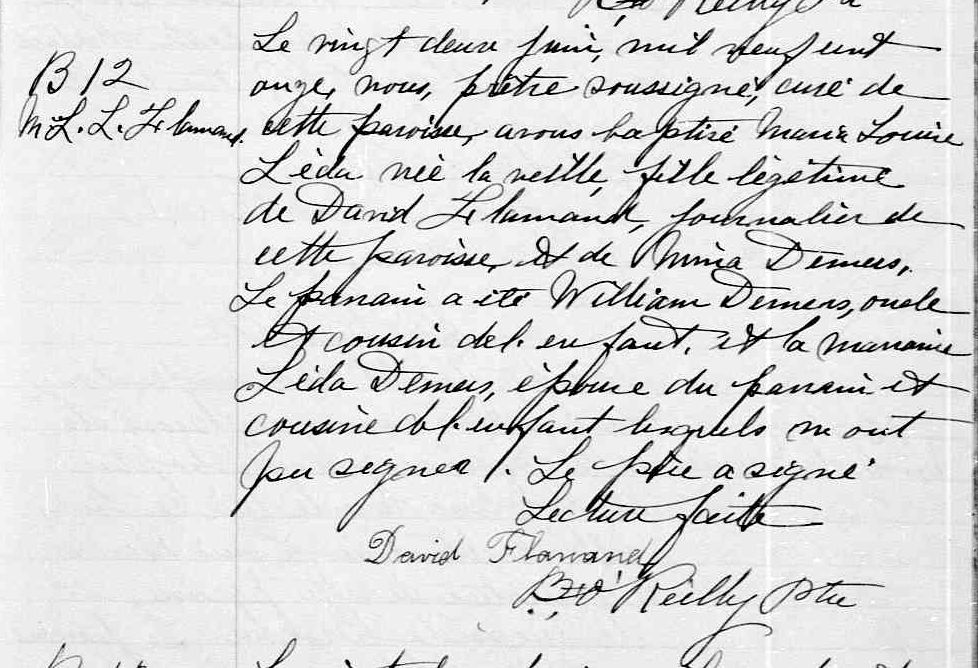 O'Reilly Ptre
B 12
M. L. L. Flamand.
Le vingt deux juin, mil neuf cent
onze, nous, prêtre soussigné, curé de
cette paroisse, avons baptisé Marie Louise
Léda née la veille, fille légitime
de David Flamand, journalier de
cette paroisse, et de Mina Demers,
Le parrain a été William Demers, oncle
et cousin de l'enfant, et la marraine
Léda Demers, épouse du parrain et
cousine de l'enfant lesquels n'ont
pu signer. Le père a signé
Lecture faite
David Flamand
O'Reilly Ptre